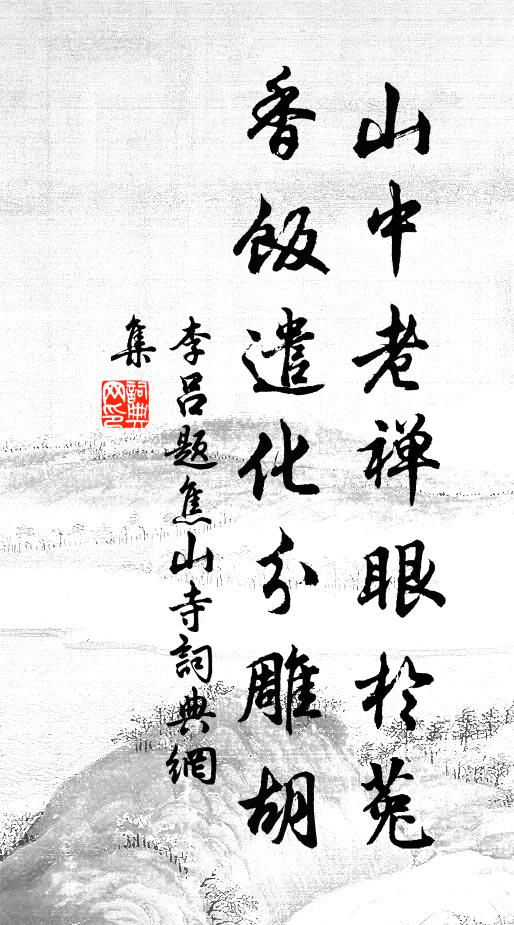 山中老禅眼於菟
香飯遣化分雕胡
李吕题焦山寺詞典網
集
詞典网印